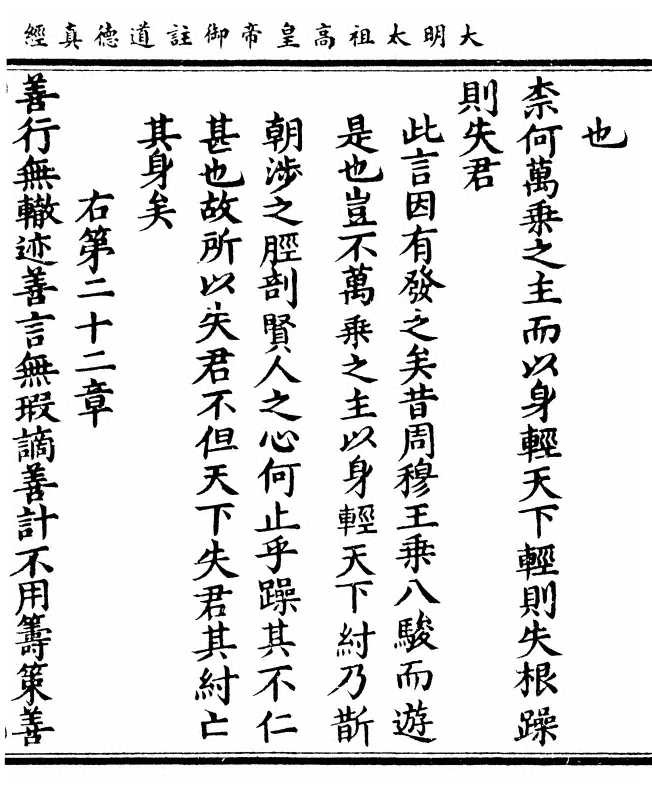 大明太祖高皇帝御註道德真經
也
柰何萬乗之主而以身輕天下輕則失根躁
則失君
此言因有發之矣昔周穆王乗八駿而遊
是也豈不萬乗之主以身輕天下紂乃斮
朝涉之脛剖賢人之心何止乎躁其不仁
甚也故所以失君不但天下失君其紂亡
其身矣
右第二十二章
善行無轍迹善言無瑕謫善計不用籌策善